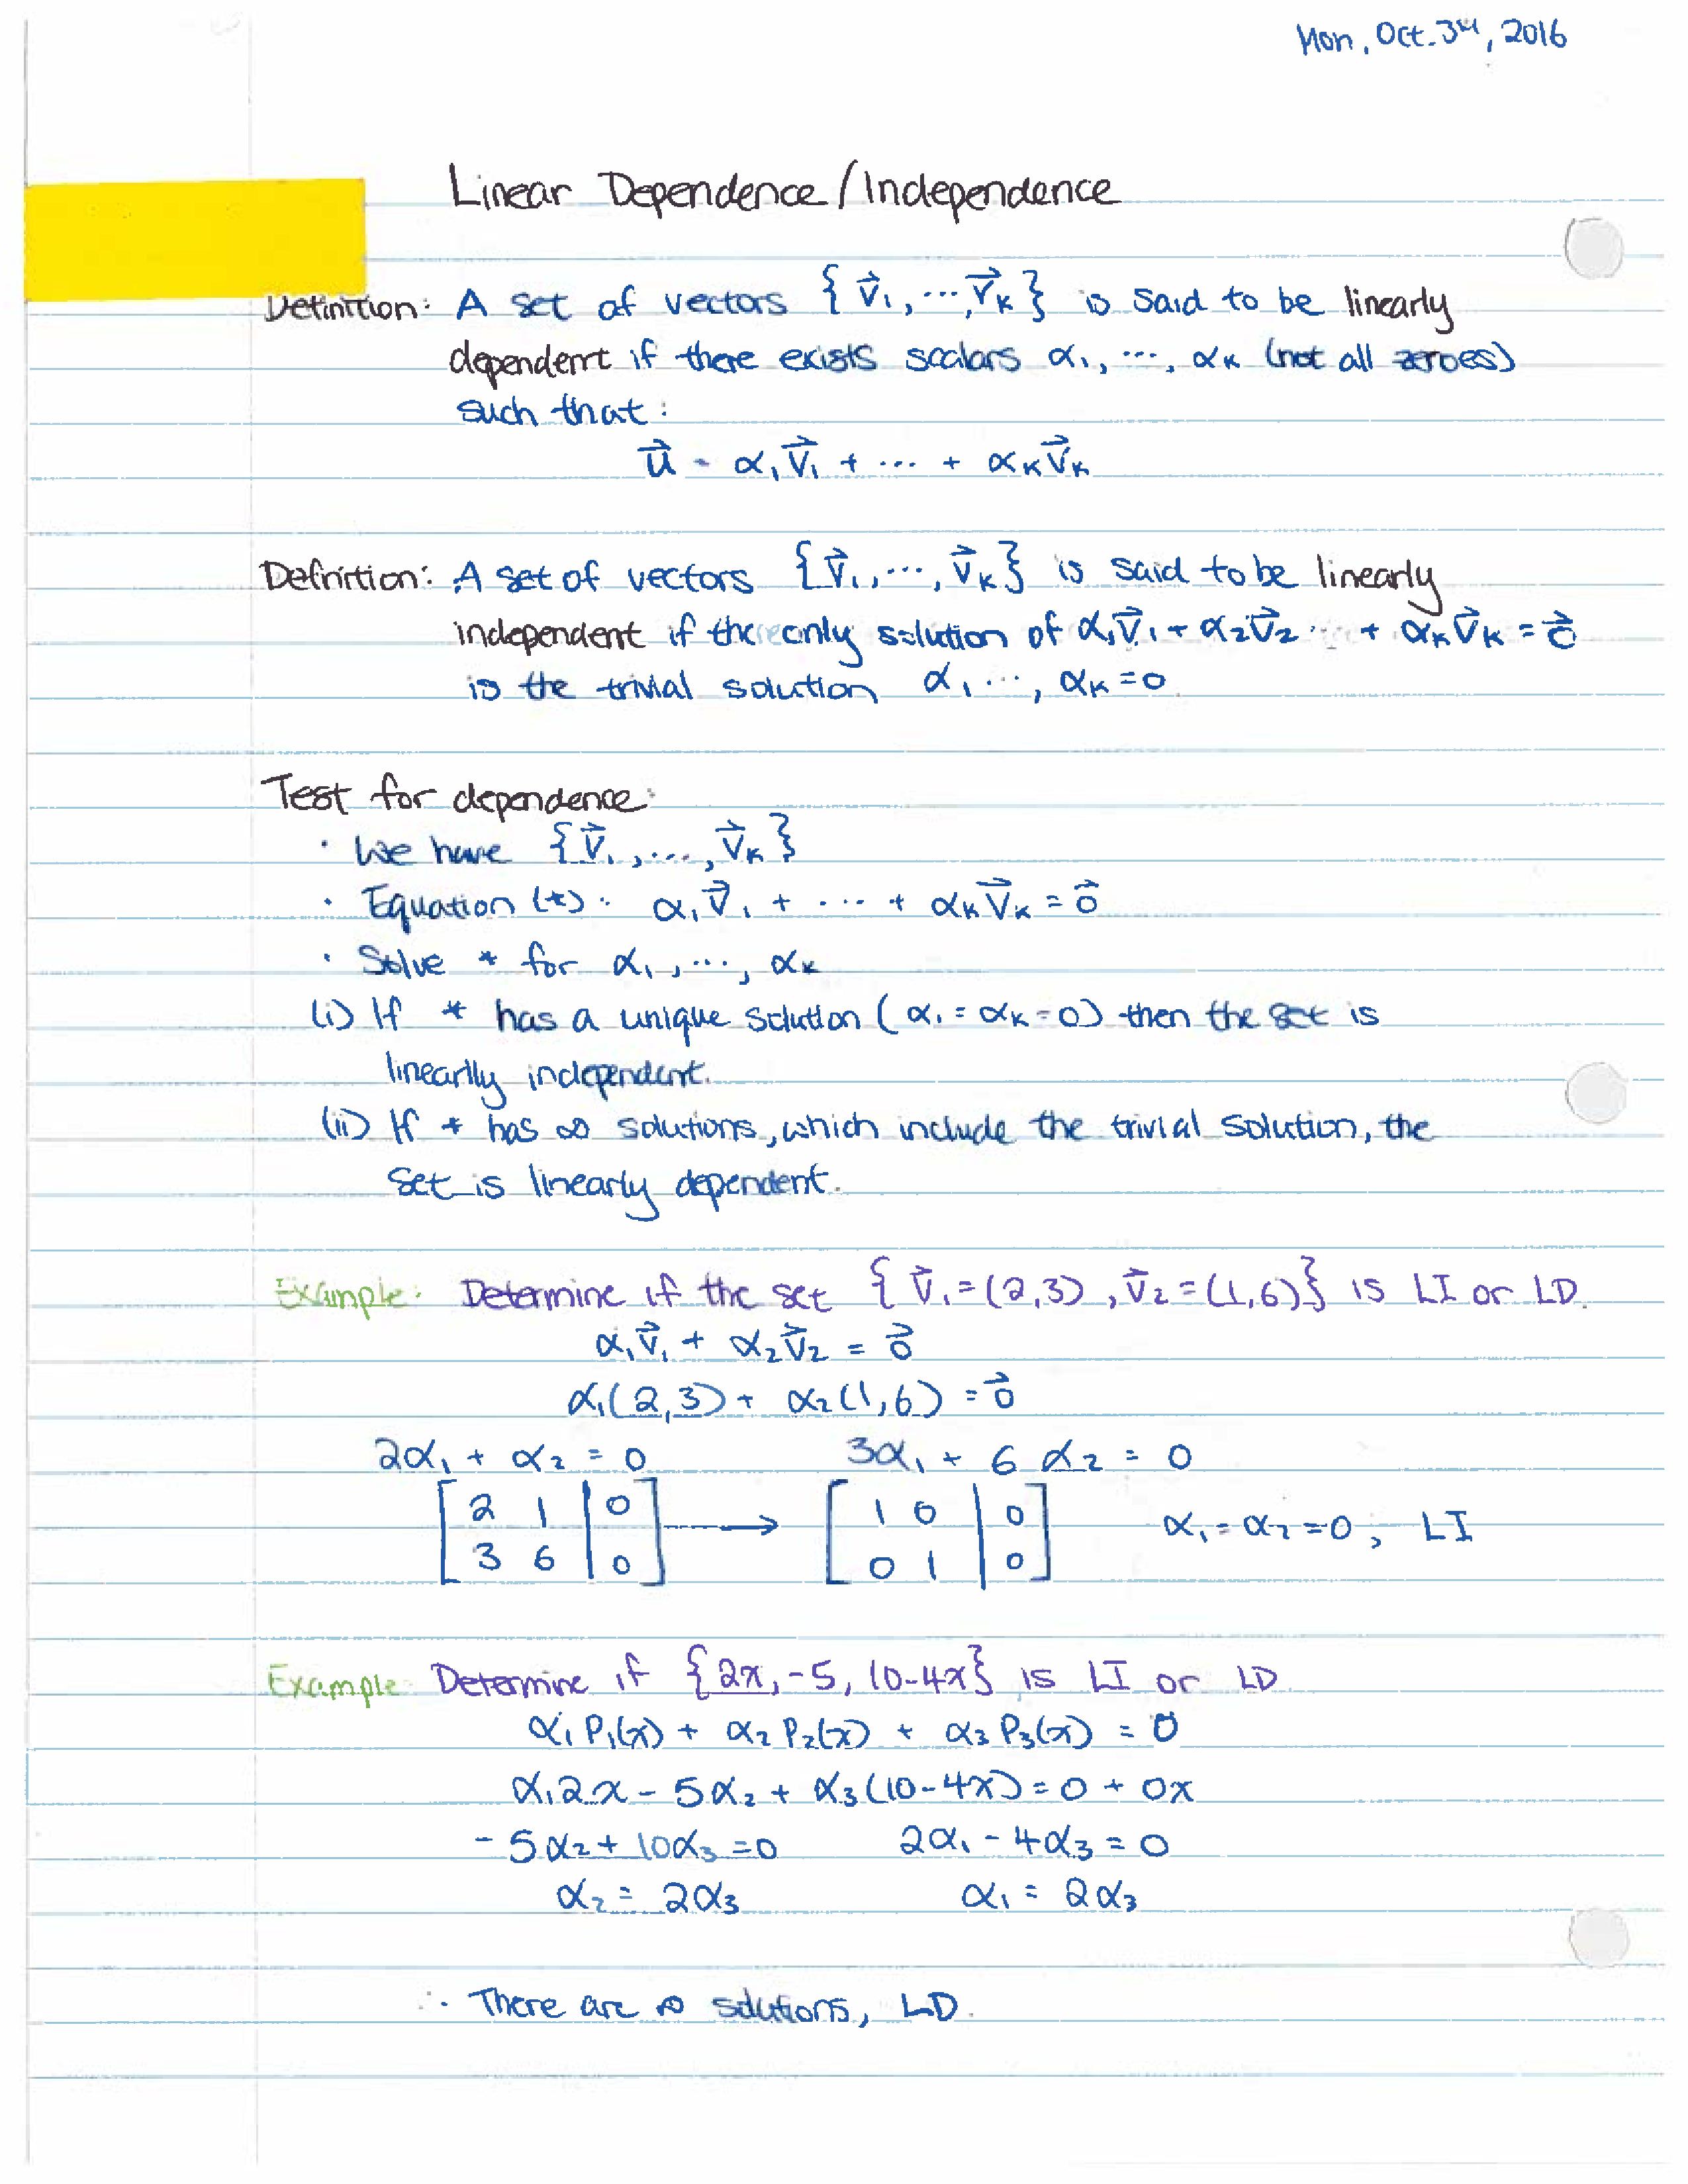 Mon, Oct. 3rd, 2016
Linear Dependence/Independence
Definition: A set of vectors {v⃗₁, ..., v⃗ₖ} is said to be linearly
dependent if there exists scalars α₁, ..., αₖ (not all zeroes)
such that:
u⃗ = α₁v⃗₁ + ... + αₖv⃗ₖ
Definition: A set of vectors {v⃗₁, ..., v⃗ₖ} is said to be linearly
independent if the only solution of α₁v⃗₁ + α₂v⃗₂ ... + αₖv⃗ₖ = 0⃗
is the trivial solution α₁ ..., αₖ = 0
Test for dependence:
· We have {v⃗₁, ..., v⃗ₖ}
· Equation (*): α₁v⃗₁ + ... + αₖv⃗ₖ = 0⃗
· Solve * for α₁, ..., αₖ
(i) If * has a unique solution (α₁ = αₖ = 0) then the set is
lineartly independent.
(ii) If * has ∞ solutions, which include the trivial solution, the
set is linearly dependent.
Example: Determine if the set {v⃗₁ = (2,3), v⃗₂ = (1,6)} is LI or LD.
α₁v⃗₁ + α₂v⃗₂ = 0⃗
α₁(2,3) + α₂(1,6) = 0⃗
2α₁ + α₂ = 0 3α₁ + 6α₂ = 0
[2 1 | 0] → [1 0 | 0] α₁ = α₂ = 0, LI
[3 6 | 0] [0 1 | 0]
Example: Determine if {2x, -5, 10-4x} is LI or LD.
α₁P₁(x) + α₂P₂(x) + α₃P₃(x) = 0⃗
α₁2x - 5α₂ + α₃(10-4x) = 0 + 0x
-5α₂ + 10α₃ = 0 2α₁ - 4α₃ = 0
α₂ = 2α₃ α₁ = 2α₃
∴ There are ∞ solutions, LD.